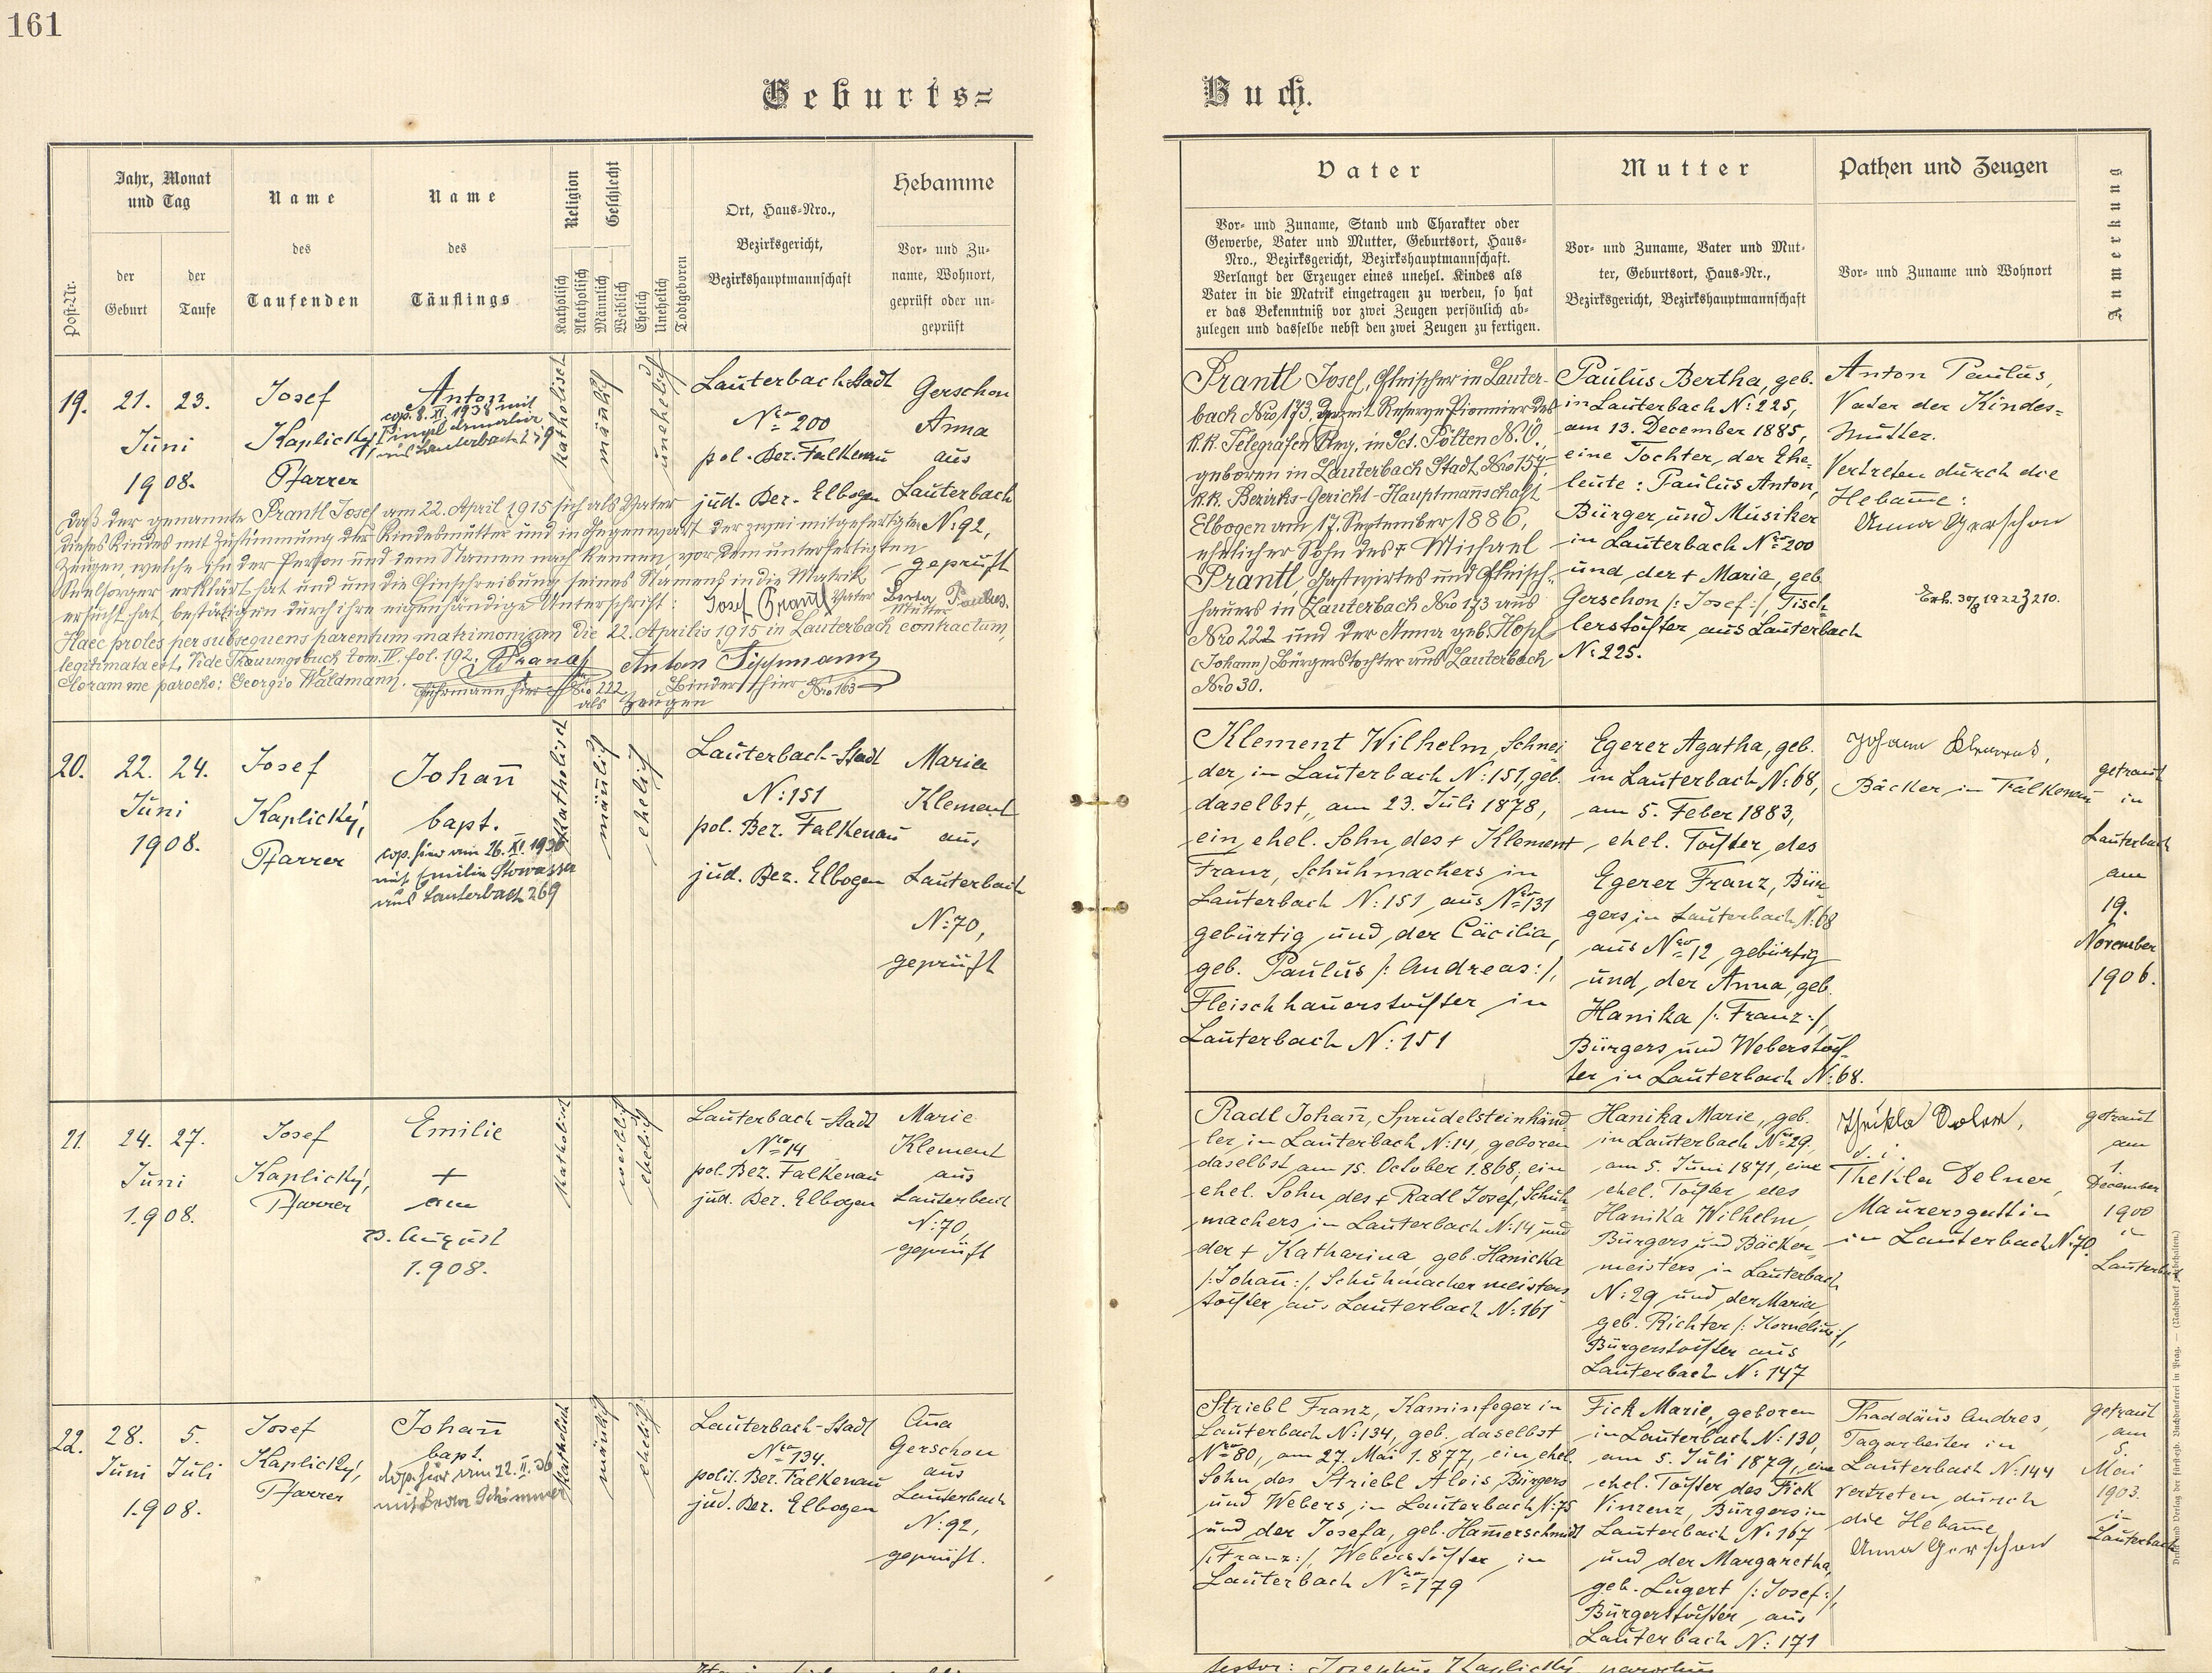 161
Geburts=
Buch.
Post-Nr.
Jahr, Monat
und Tag
der
Geburt
der
Taufe
Name
des
Taufenden
Name
des
Täuflings
Religion
Katholisch
Akatholisch
Geschlecht
Männlich
Weiblich
Ehelich
Unehelich
Todtgeboren
Ort, Haus-Nro.,
Bezirksgericht,
Bezirkshauptmannschaft
Hebamme
Vor- und Zu-
name, Wohnort,
geprüft oder un-
geprüft
Vater
Vor- und Zuname, Stand und Charakter oder
Gewerbe, Vater und Mutter, Geburtsort, Haus-
Nro., Bezirksgericht, Bezirkshauptmannschaft.
Verlangt der Erzeuger eines unehel. Kindes als
Vater in die Matrik eingetragen zu werden, so hat
er das Bekenntniß vor zwei Zeugen persönlich ab-
zulegen und dasselbe nebst den zwei Zeugen zu fertigen.
Mutter
Vor- und Zuname, Vater und Mut-
ter, Geburtsort, Haus-Nr.,
Bezirksgericht, Bezirkshauptmannschaft
Pathen und Zeugen
Vor- und Zuname und Wohnort
Anmerkung
19.
21. 23.
Juni
1908.
Josef
Kaplický,
Pfarrer
Anton
cop. 8. XI. 1938 mit
aus Lauterbach 279
katholisch
mäñlich
unehelich
Lauterbach Stadt
Nro 200
pol. Bez. Falkenau
jud. Bez. Elbogen
Gerschon
Anna
aus
Lauterbach
N: 92,
geprüft
Daß der genannte Prantl Josef am 22. April 1915 sich als Vater
dieses Kindes mit Zustimmung der Kindesmutter und in Gegenwart der zwei mitgefertigten
Zeugen, welche ihn der Person und dem Namen nach kennen, vor dem unterfertigten
Seelsorger erklärt hat und um die Einschreibung seines Namens in die Matrik
ersucht hat, bestätigen durch ihre eigenhändige Unterschrift: Josef Prantl Vater Berta Paulus. Mutter
Haec proles per subsequens parentum matrimonium die 22. Aprilis 1915 in Lauterbach contractum,
legitimata est. Vide Trauungsbuch tom. IV. fol. 192. Anton Sippmann
Coram me parocho: Georgio Waldmann. Fuhrmann hier Nro 222 Binder hier Nro 163
als Zeugen
Prantl Josef, Fleischer in Lauter-
bach Nro 173, derzeit Reserve Pionnier des
K.K. Telegrafen Rmg. in Sct. Pölten N.Ö.,
geboren in Lauterbach Stadt Nro 157,
K.K. Bezirks-Gericht-Hauptmañschaft
Elbogen am 17. September 1886,
ehelicher Sohn des + Michael
Prantl, Gastwirtes und Fleisch-
hauers in Lauterbach Nro 173 aus
Nro 222 und der Anna geb. Hopf
(Johann) Bürgerstochter aus Lauterbach
Nro 30.
Paulus Bertha, geb.
in Lauterbach N: 225,
am 13. December 1885,
eine Tochter, der Ehe-
leute: Paulus Anton,
Bürger und Musiker
in Lauterbach Nro 200
und der + Maria, geb.
Gerschon /: Josef :/, Tisch-
lerstochter aus Lauterbach
N: 225.
Anton Paulus,
Vater der Kindes-
mutter.
Vertreten durch die
Hebam̄e:
Anna Gerschon
20.
22. 24.
Juni
1908.
Josef
Kaplický,
Pfarrer
Johañ
bapt.
cop. hier am 26. XI. 1936
mit Emilie Stowasser
aus Lauterbach 269
katholisch
mäñlich
ehelich
Lauterbach-Stadt
N: 151
pol. Bez. Falkenau
jud. Bez. Elbogen
Maria
Klement
aus
Lauterbach
N: 70,
geprüft
Klement Wilhelm, Schnei
der, in Lauterbach N: 151, geb.
daselbst, am 23. Juli 1878,
ein ehel. Sohn des + Klement
Franz, Schuhmachers in
Lauterbach N: 151 aus Nro 131
gebürtig und der Cäcilia,
geb. Paulus /: Andreas :/,
Fleischhauerstochter in
Lauterbach N: 151
Egerer Agatha, geb.
in Lauterbach N: 68,
am 5. Feber 1883,
ehel. Tochter des
Egerer Franz, Bür-
gers in Lauterbach N: 68
aus Nro 12 gebürtig
und der Anna, geb.
Hanika /: Franz :/,
Bürgers und Weberstoch-
ter in Lauterbach N: 68.
Johann Klement,
Bäcker in Falkenau
getraut
in
Lauterbach
am
19.
November
1906.
21.
24. 27.
Juni
1908.
Josef
Kaplický,
Pfarrer
Emilie
+
am
23. August
1908.
katholisch
weiblich
ehelich
Lauterbach-Stadt
Nro 14
pol. Bez. Falkenau
jud. Bez. Elbogen
Marie
Klement
aus
Lauterbach
N: 70,
geprüft
Radl Johañ, Sprudelsteinhänd-
ler, in Lauterbach N: 14, geboren
daselbst am 15. October 1868, ein
ehel. Sohn des + Radl Josef, Schuh-
machers in Lauterbach N: 14 und
der + Katharina, geb. Hanicka
/: Johañ :/, Schuhmachermeisters
tochter aus Lauterbach N: 161
Hanika Marie, geb.
in Lauterbach Nro 29,
am 5. Juni 1871, eine
ehel. Tochter des
Hanika Wilhelm,
Bürgers und Bäcker-
meisters in Lauterbach
N: 29 und der Maria,
geb. Richter /: Kornelius :/,
Bürgerstochter aus
Lauterbach N: 147
d. i.
Thekla Delner,
Maurersgattin
in Lauterbach N: 70.
getraut
am
1.
December
1900
in
Lauterbach
22.
28. 5.
Juni Juli
1908.
Josef
Kaplický,
Pfarrer
Johañ
bapt.
cop. hier am 22. II. 36
mit Berta Schimmer
katholisch
mäñlich
ehelich
Lauterbach-Stadt
Nro 134.
polit. Bez. Falkenau
jud. Bez. Elbogen
Aña
Gerschon
aus
Lauterbach
N: 92,
geprüft.
Striebl Franz, Kaminfeger in
Lauterbach N: 134, geb. daselbst
Nro 80, am 27. Mai 1877, ein ehel.
Sohn des Striebl Alois, Bürgers
und Webers in Lauterbach N: 75
und der Josefa, geb. Ham̄erschmidt
/: Franz :/, Weberstochter in
Lauterbach Nro 179
Fick Marie, geboren
in Lauterbach N: 130,
am 5. Juli 1879, eine
ehel. Tochter des Fick
Vinzenz, Bürgers in
Lauterbach N: 167
und der Margaretha,
geb. Lugert /: Josef :/,
Bürgerstochter, aus
Lauterbach N: 171
Thaddäus Andres,
Tagarbeiter in
Lauterbach N: 144
vertreten durch
die Hebam̄e
Anna Gerschon
getraut
am
5.
Mai
1903.
in
Lauterbach
Druck und Verlag der fürsterzb. Buchdruckerei in Prag. — (Nachdruck vorbehalten.)
testor: Josephus Kaplický, parochus